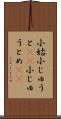 小姑小じゅう
と 小じゅ
うとめ